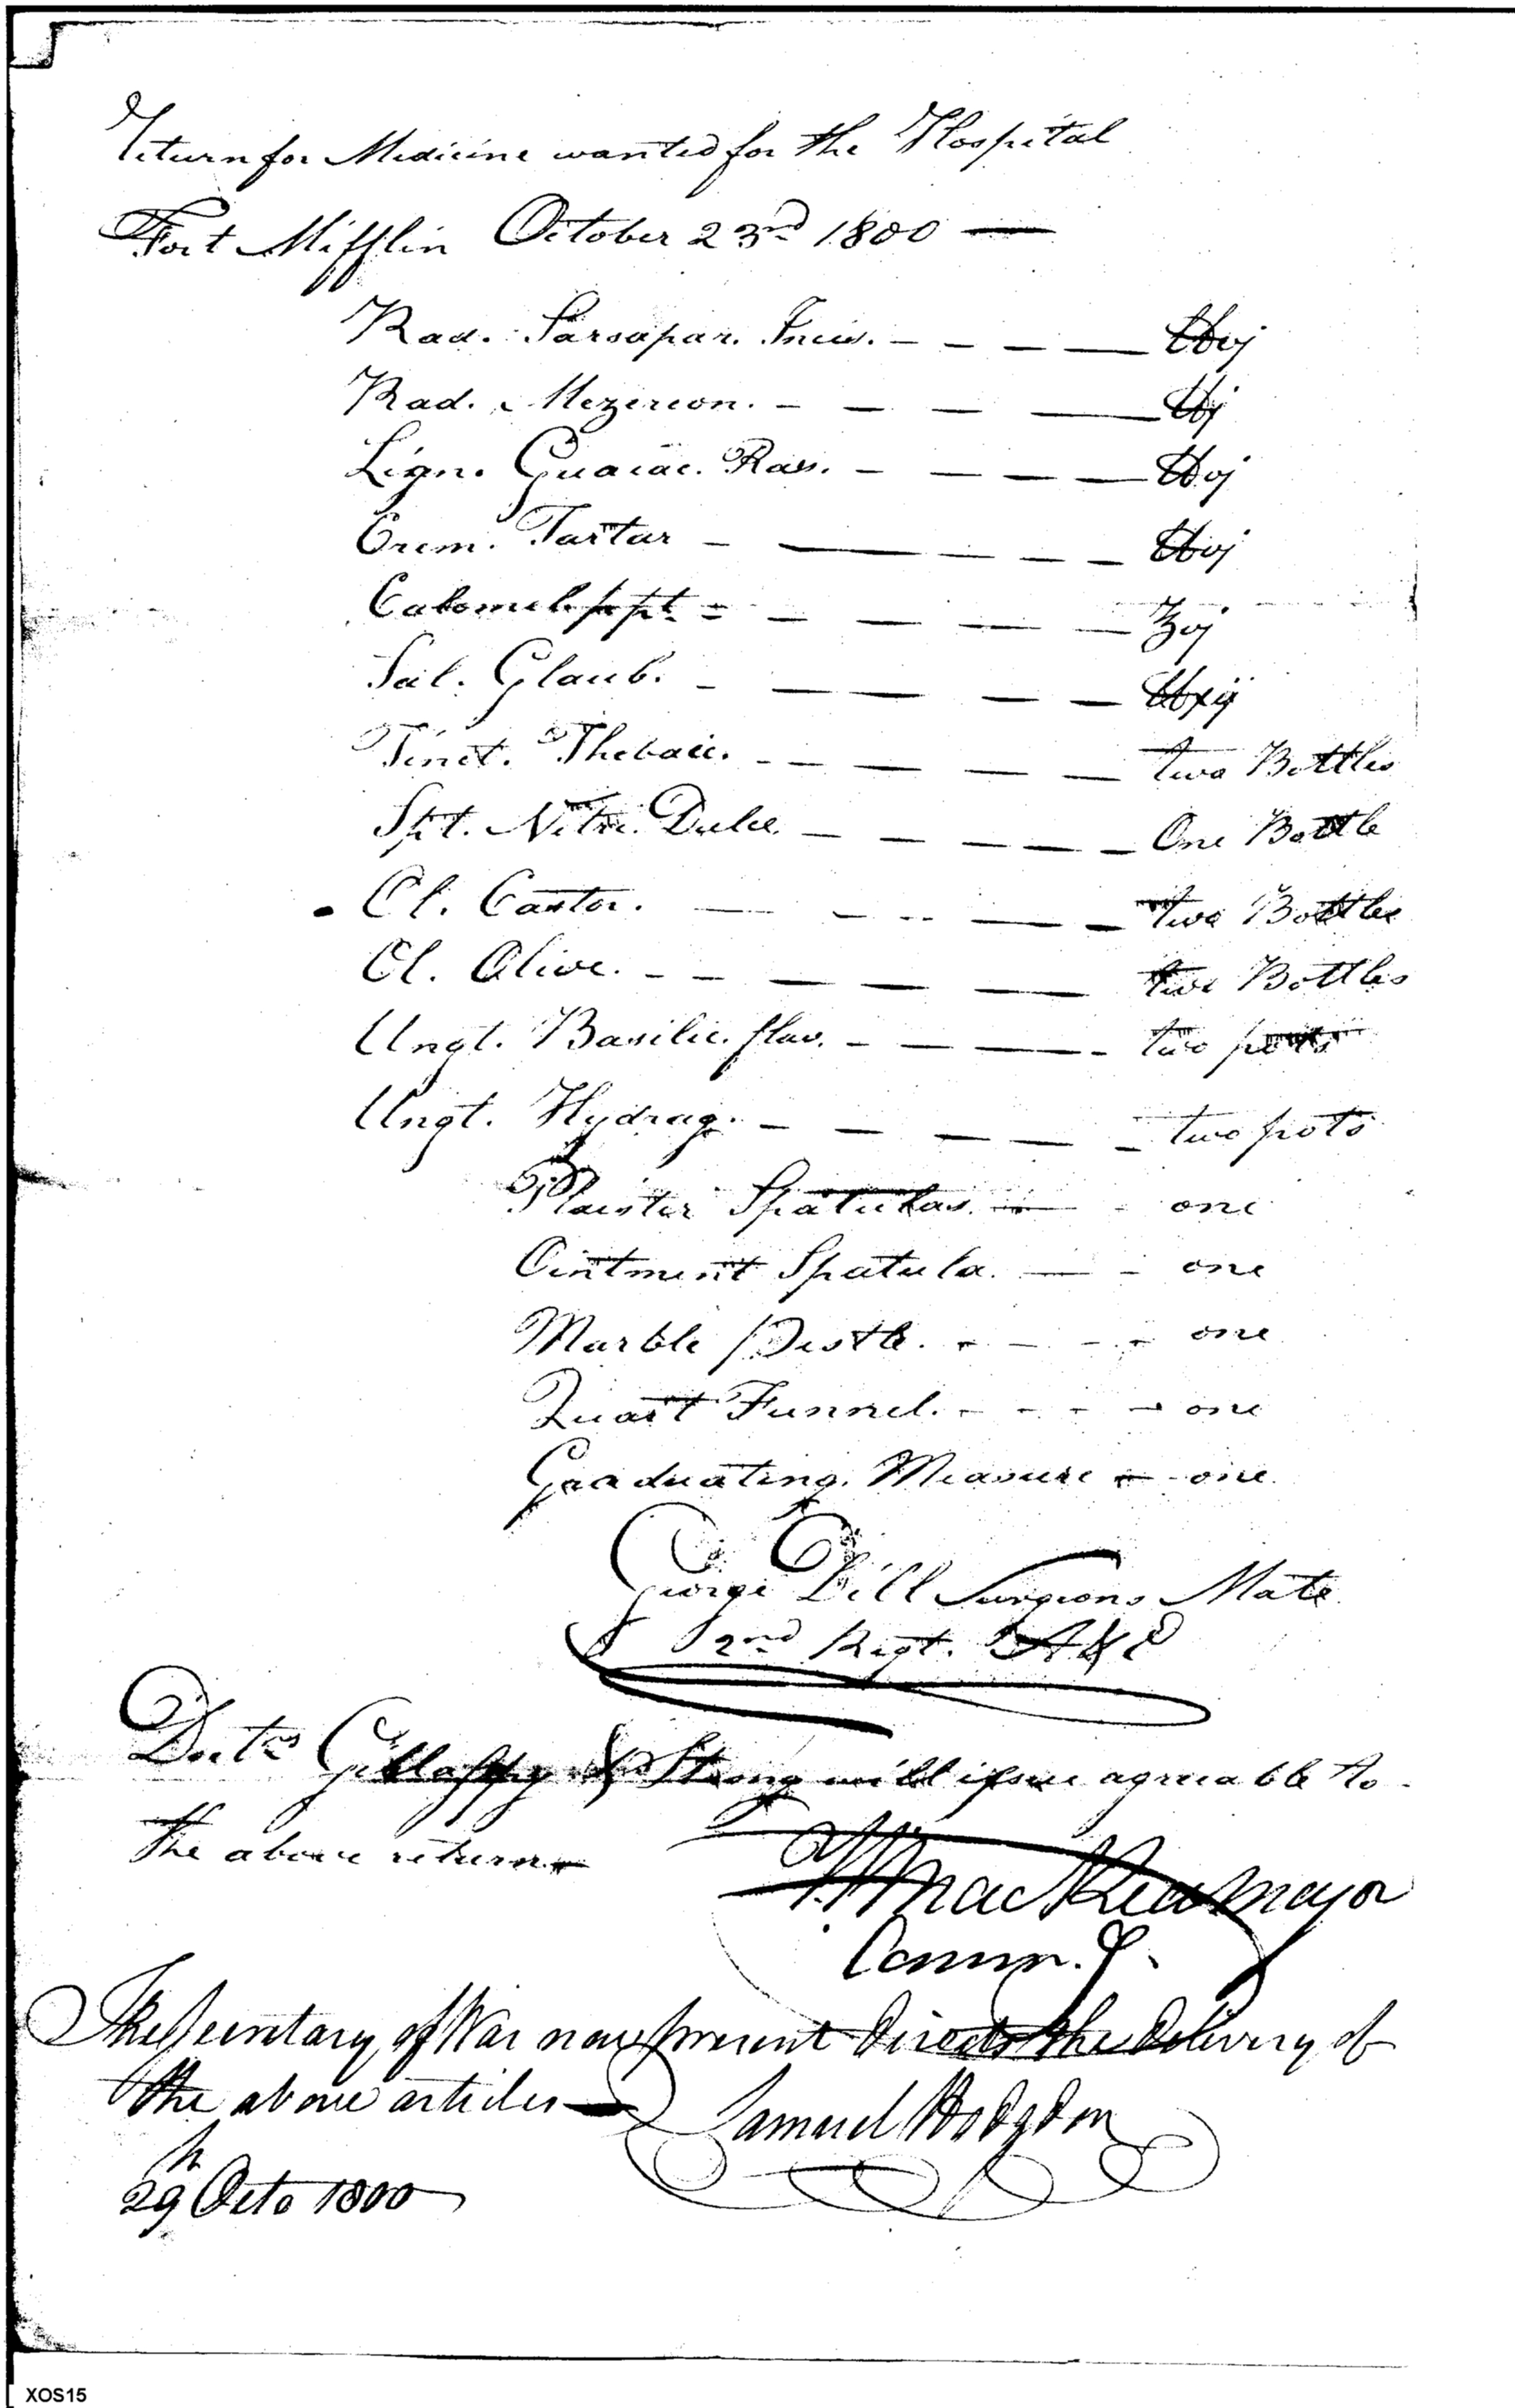 Return for Medicine wanted for the Hospital
Fort Mifflin October 23rd 1800 —
Rad. Sarsapar. Incis. - - - — ℔ij
Rad. Mezereon. - - - — ℔j
Lign. Guaiac. Ras. - - - — ℔ij
Crem. Tartar - — - - - ℔ij
Calomel ppt. - - - - - ℥ij
Sal. Glaub. - - - - - ℔xij
Tinct. Thebaic. - - - - - two Bottles
Spt. Nitri. Dulce. - - - - - One Bottle
Ol. Castor. - - - - - two Bottles
Ol. Olive. - - - - - - two Bottles
Ungt. Basilic. flav. - - — - two pots
Ungt. Hydrag. - - - - - two pots
Plaister Spatulas. — - one
Ointment Spatula. — - one
Marble Pestle. - - - - one
Quart Funnel. - - - - one
Graduating Measure - - one.
George Dill Surgeons Mate
2nd Regt. A & E
Doctrs Gillaspy & Strong will issue agreeable to
the above return
Major
Comm. g.
The Secretary of War now present directs the delivery of
the above articles —
Samuel Hodgdon
29th Octo 1800
XOS15